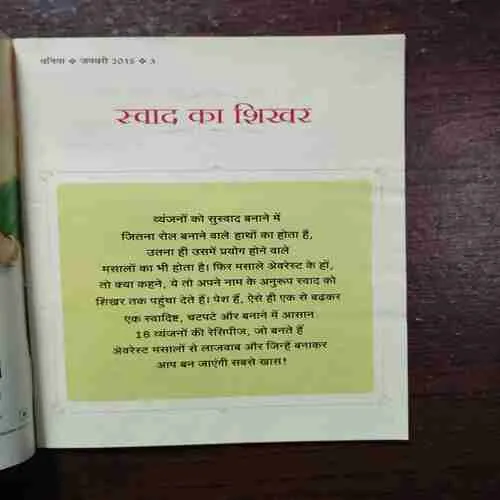 वनिता ❖ जनवरी 2015 ❖ 3
स्वाद का शिखर
व्यंजनों को सुस्वाद बनाने में
जितना रोल बनाने वाले हाथों का होता है,
उतना ही उसमें प्रयोग होने वाले
मसालों का भी होता है। फिर मसाले अेवरेस्ट के हों,
तो क्या कहने, ये तो अपने नाम के अनुरूप स्वाद को
शिखर तक पहुंचा देते हैं। पेश हैं, ऐसे ही एक से बढ़कर
एक स्वादिष्ट, चटपटे और बनाने में आसान
18 व्यंजनों की रेसिपीज, जो बनते हैं
अेवरेस्ट मसालों से लाजवाब और जिन्हें बनाकर
आप बन जाएंगी सबसे खास!